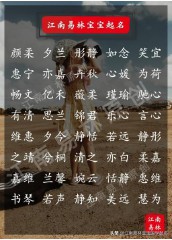 江南易林宝宝起名
颜柔 夕兰 彤静 如念 笑宜
惠宁 亦嘉 卉秋 心媛 为荷
畅文 忆禾 薇菜 瑾瑜 驰心
有清 思兰 锦君 乐心 言心
维惠 夕今 静恬 若远 静彤
之晴 兮桐 清之 亦白 柔嘉
嘉维 兰馨 婉云 恬畅 远静
书琴 若声 静知 美远 慧为
江南
易林